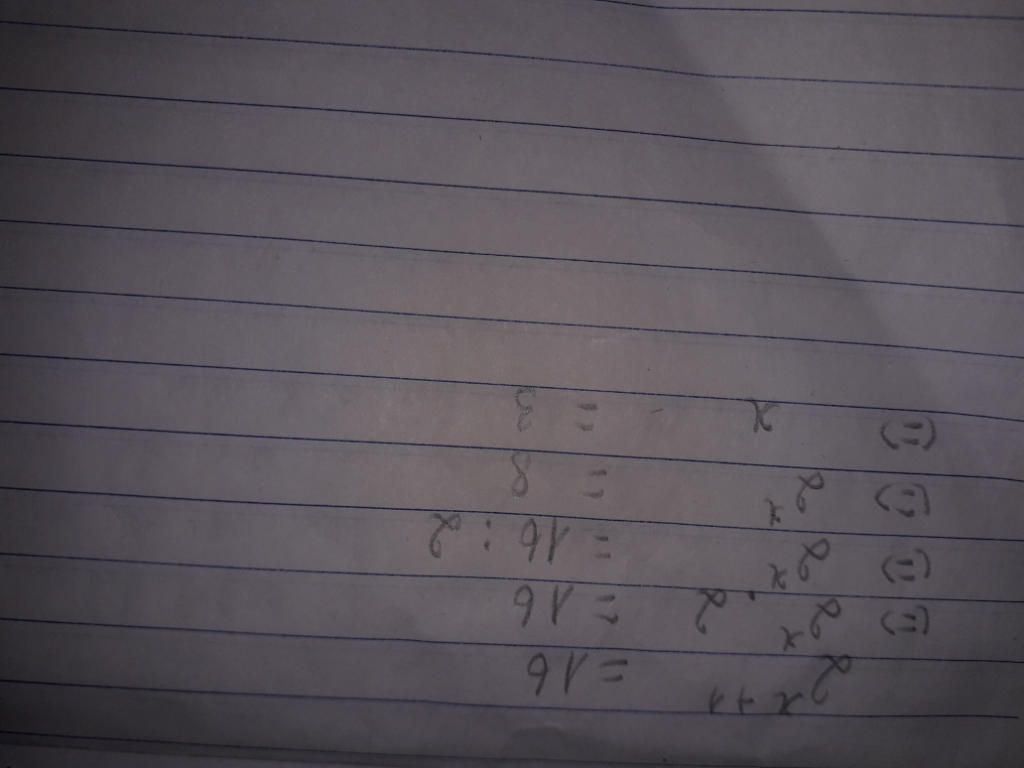 2^{x+1} = 16
(=) 2^x . 2 = 16
(=) 2^x = 16 : 2
(=) 2^x = 8
(=) x = 3